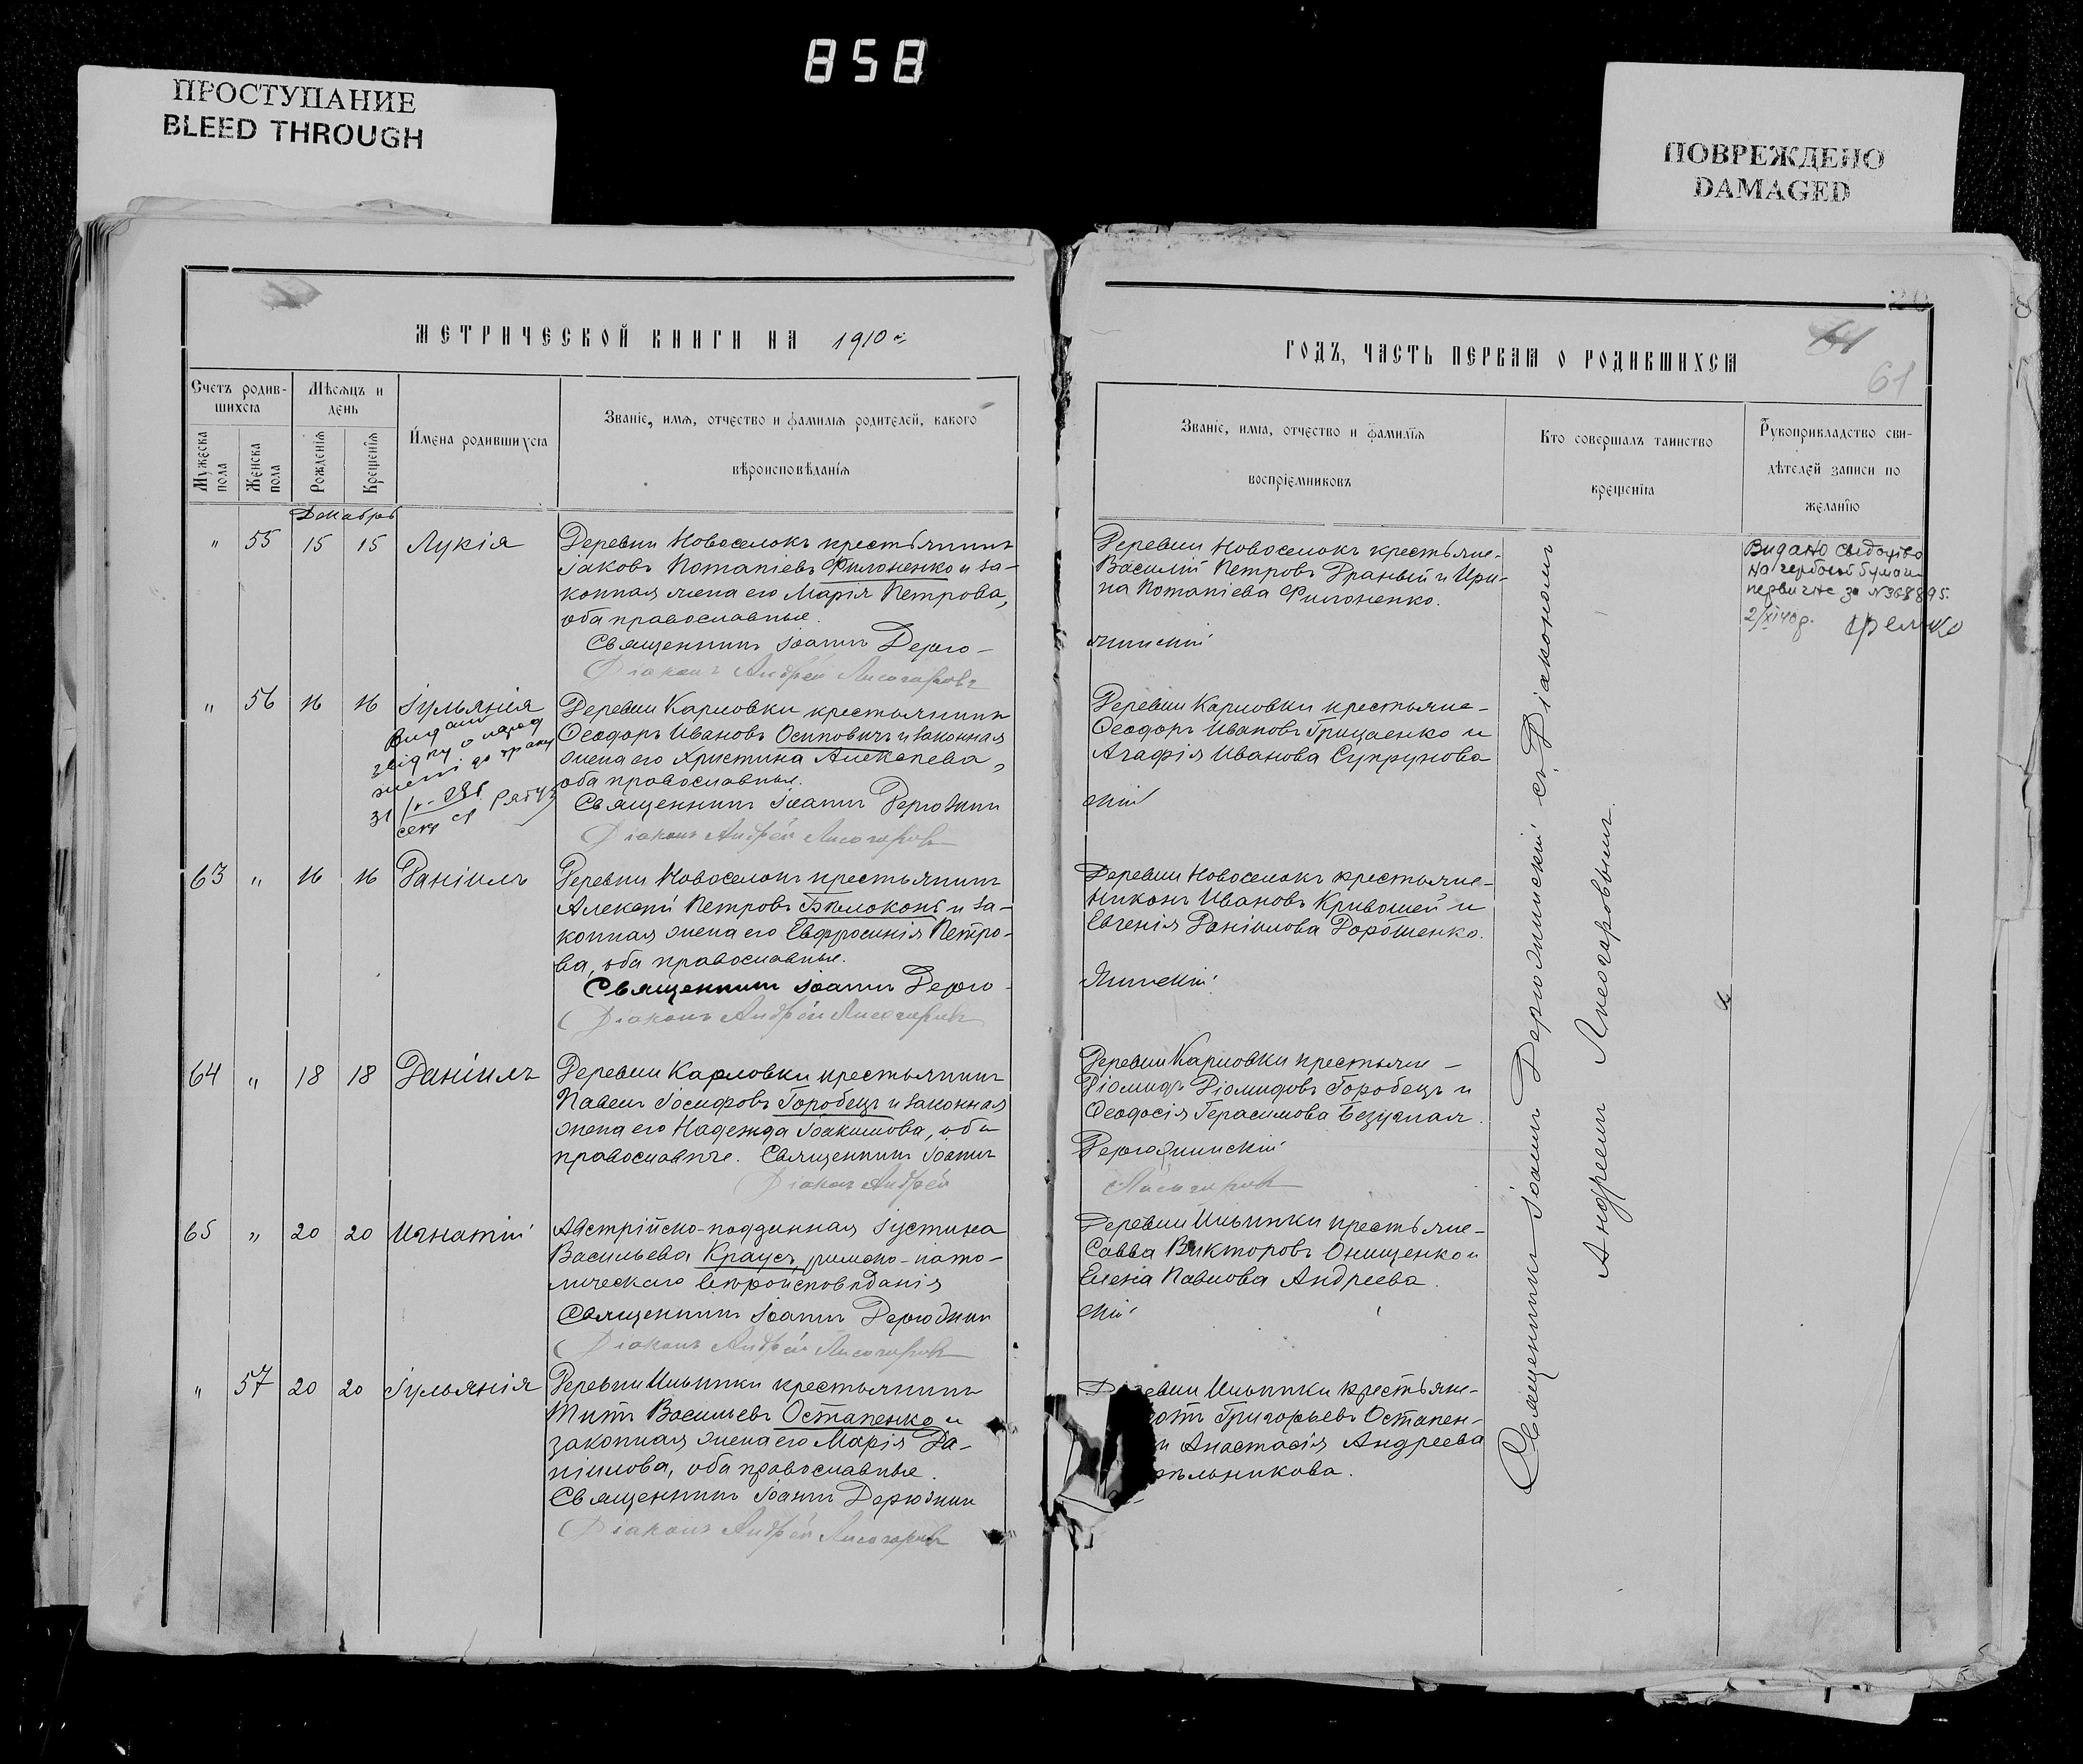 858
ПРОСТУПАНИЕ
BLEED THROUGH
ПОВРЕЖДЕНО
DAMAGED
МЕТРИЧЕСКОЙ КНИГИ НА 1910 й
Счетъ родив-
шихся
Мѣсяцъ и
день
Имена родившихся
Званіе, имя, отчество и фамилія родителей, какого
вѣроисповѣданія
Мужеска
пола
Женска
пола
Рожденія
Крещенія
Декабрь
" 55 15 15 Лукія
Деревни Новоселокъ крестьянинъ
Іаковъ Потапіевъ Филоненко и за-
конная жена его Марія Петрова,
оба православные.
Священникъ Іоаннъ Дерю-
Діаконъ Андрей Лисогаровъ
" 56 16 16 Іульянія
Видано
31
Деревни Карловки крестьянинъ
Ѳеодоръ Ивановъ Осиповичъ и законная
жена его Христина Алексіева,
оба православные.
Священникъ Іоаннъ Дерюжин
Діаконъ Андрей Лисогаровъ
63 " 16 16 Даніилъ
Деревни Новоселокъ крестьянинъ
Алексій Петровъ Бѣлоконь и за-
конная жена его Евфросинія Петро-
ва, оба православные.
Священникъ Іоаннъ Дерю-
Діаконъ Андрей Лисогаровъ
64 " 18 18 Даніилъ
Деревни Карловки крестьянинъ
Павелъ Іосифовъ Горобецъ и законная
жена его Надежда Іоакимова, оба
православные. Священникъ Іоаннъ
Діаконъ Андрей
65 " 20 20 Игнатій
Австрійско-подданная Іустина
Васильева Краусъ, римско-като-
лическаго вѣроисповѣданія
Священникъ Іоаннъ Дерюжин
Діаконъ Андрей Лисогаровъ
" 57 20 20 Іульянія
Деревни Ильинки крестьянинъ
Титъ Васильевъ Остапенко и
законная жена его Марія Да-
ніилова, оба православные.
Священникъ Іоаннъ Дерюжин
Діаконъ Андрей Лисогаровъ
ГОДЪ, ЧАСТЬ ПЕРВАЯ О РОДИВШИХСЯ
61
Званіе, имя, отчество и фамилія
воспріемниковъ
Кто совершалъ таинство
крещенія
Рукоприкладство сви-
дѣтелей записи по
желанію
Деревни Новоселокъ крестьяне-
Василій Петровъ Драный и Ири-
на Потапіева Филоненко.
жинскій
Деревни Карловки крестьяне-
Ѳеодоръ Ивановъ Грицаенко и
Агафія Иванова Супрунова
скій
Деревни Новоселокъ крестьяне-
Никонъ Ивановъ Кривошей и
Евгенія Даніилова Дорошенко.
жинскій
Деревни Карловки крестьяне -
Діомидъ Діомидовъ Горобецъ и
Ѳеодосія Герасимова Безуглая.
Дерюжинскій
Лисогаровъ
Деревни Ильинки крестьяне-
Савва Викторовъ Онищенко и
Елена Павлова Андреева.
скій
Деревни Ильинки крестьяне-
Григорьевъ Остапен-
и Анастасія Андреева
Священникъ Іоаннъ Дерюжинскій съ Діакономъ
Андреемъ Лисогаровымъ.
Видано свідоцтво
на гербовой бумаги
первичне за N368895.
2/XI 40 р.